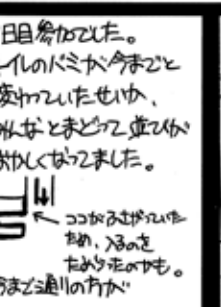 日目参加でした。
イレのバミが今までと
変わっていたせいか、
みんなとまどって並びが
おかしくなってました。
ココがふさがっていた
ため、入るのを
ためらったのかも。
今まで通りの方が